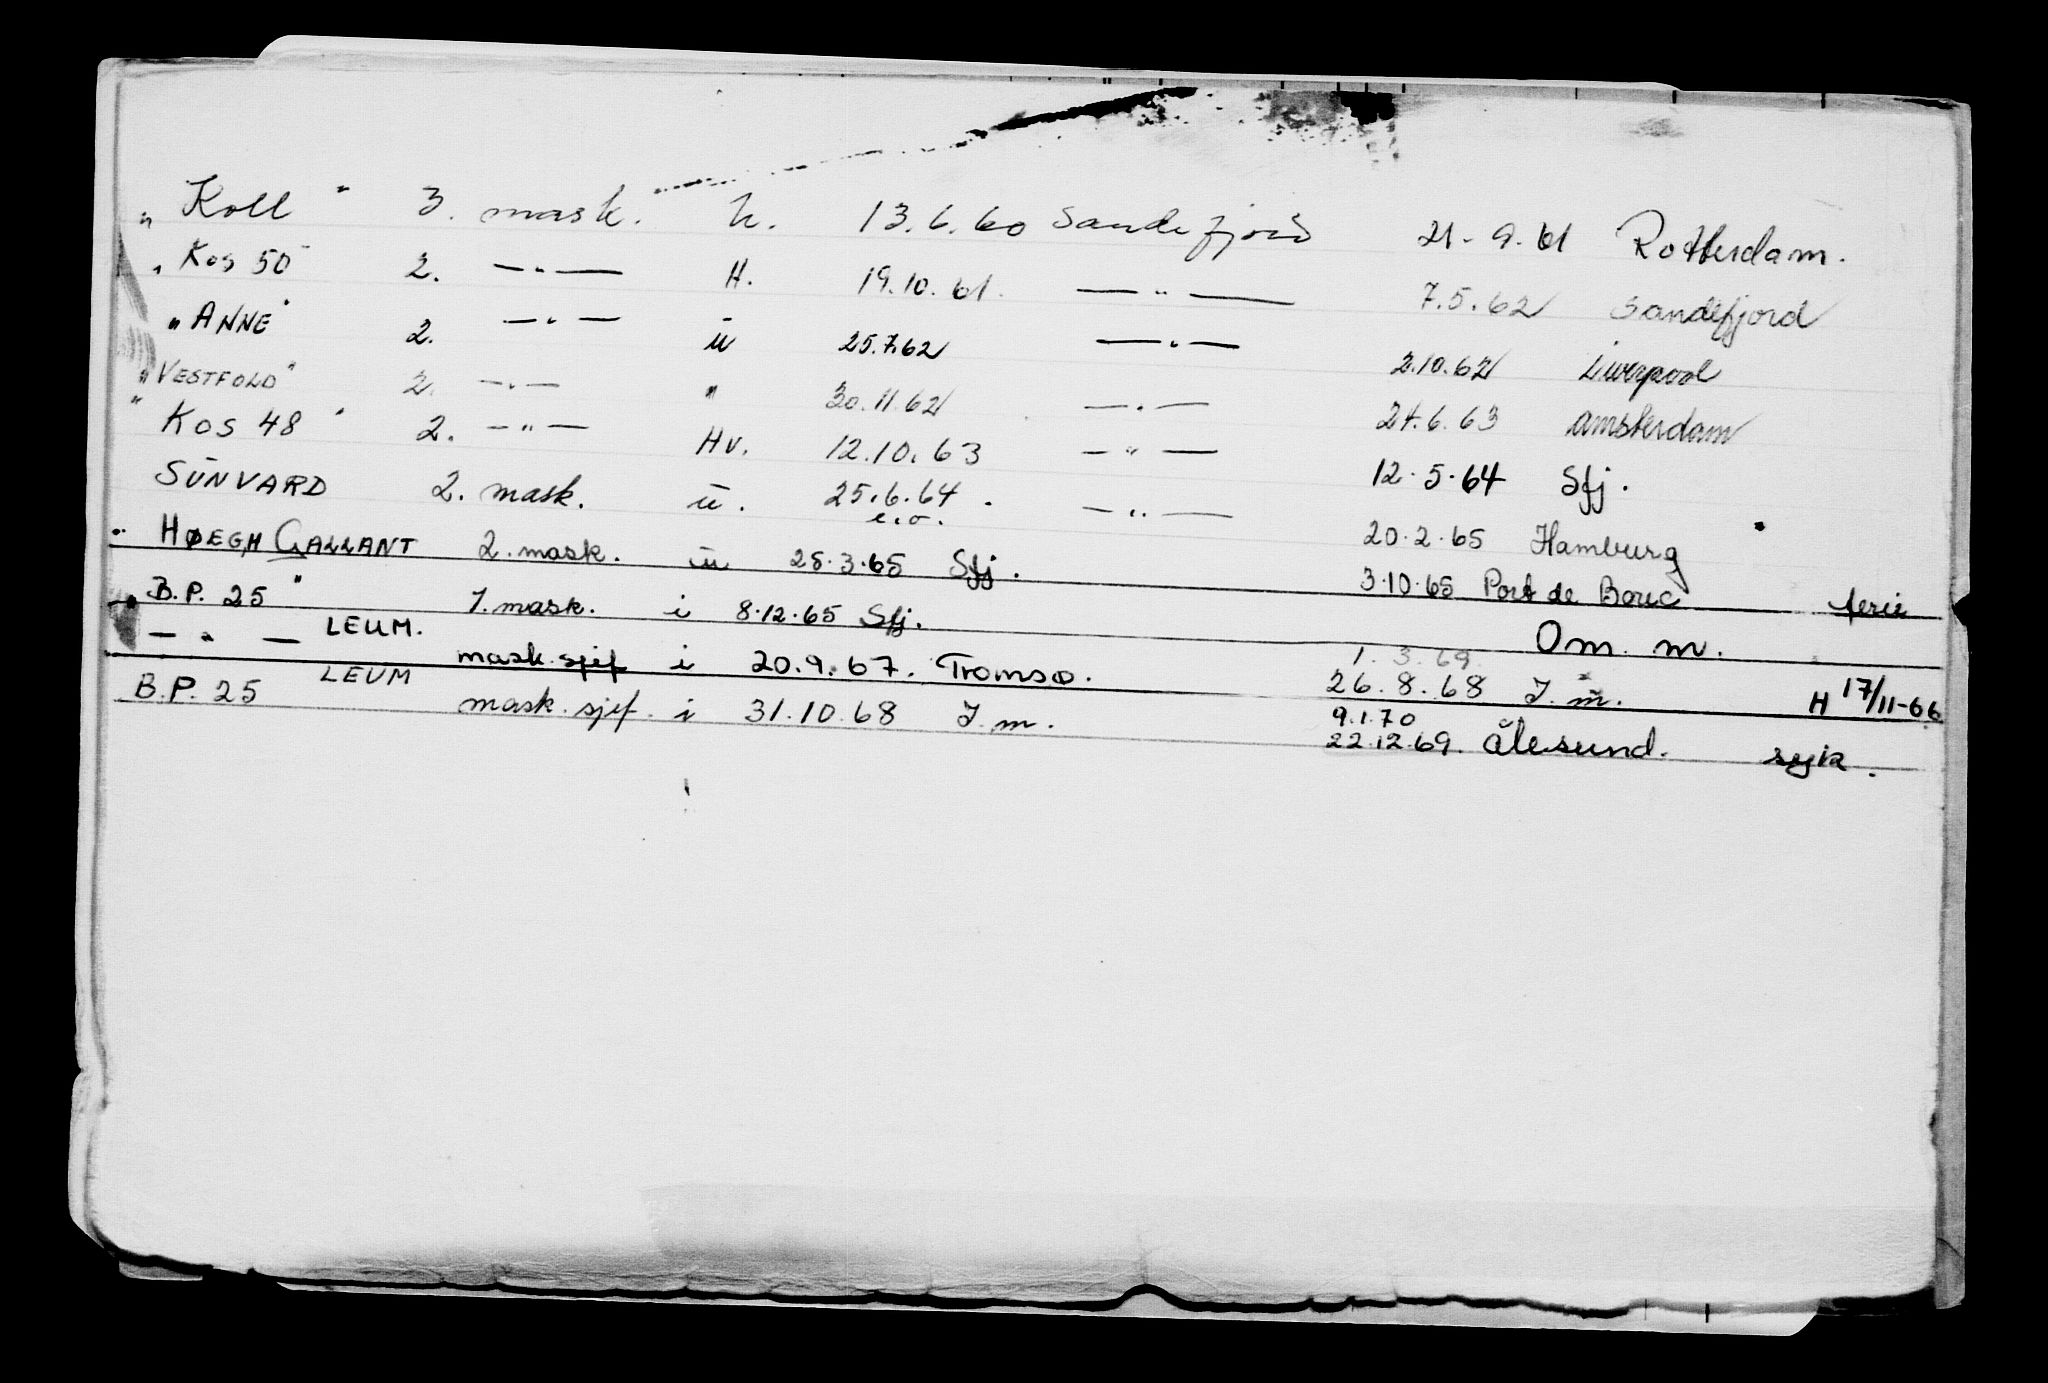 „ Koll " 3. mask. h. 13.6.60 Sandefjord 21-9.61 Rotterdam.
„ Kos 50" 2. —„— H. 19.10.61. —„— 7.5.62 Sandefjord
"ANNE" 2. —„— ū 25.7.62 —„— 2.10.62 Liverpool
"VESTFOLD" 2. —„— " 30.11.62 —„— 24.6.63 Amsterdam
" Kos 48 " 2. —„— Hv. 12.10.63 —„— 12.5.64 Sfj.
SUNVARD 2. mask. ū. 25.6.64 —„— 20.2.65 Hamburg "
e.o.
" HØEGH GALLANT 2. mask. ū 28.3.65 Sfj. 3.10.65 Port de Bouc ferie
" B.P. 25 " 1. mask. i 8.12.65 Sfj. Om. m.
— " — LEUM. mask.sjef i 20.9.67. Tromsø. 1.3.69. 26.8.68 I.m. H 17/11-66
B.P. 25 LEUM mask.sjef. i 31.10.68 I.m. 9.1.70
22.12.69. Ålesund. syk.